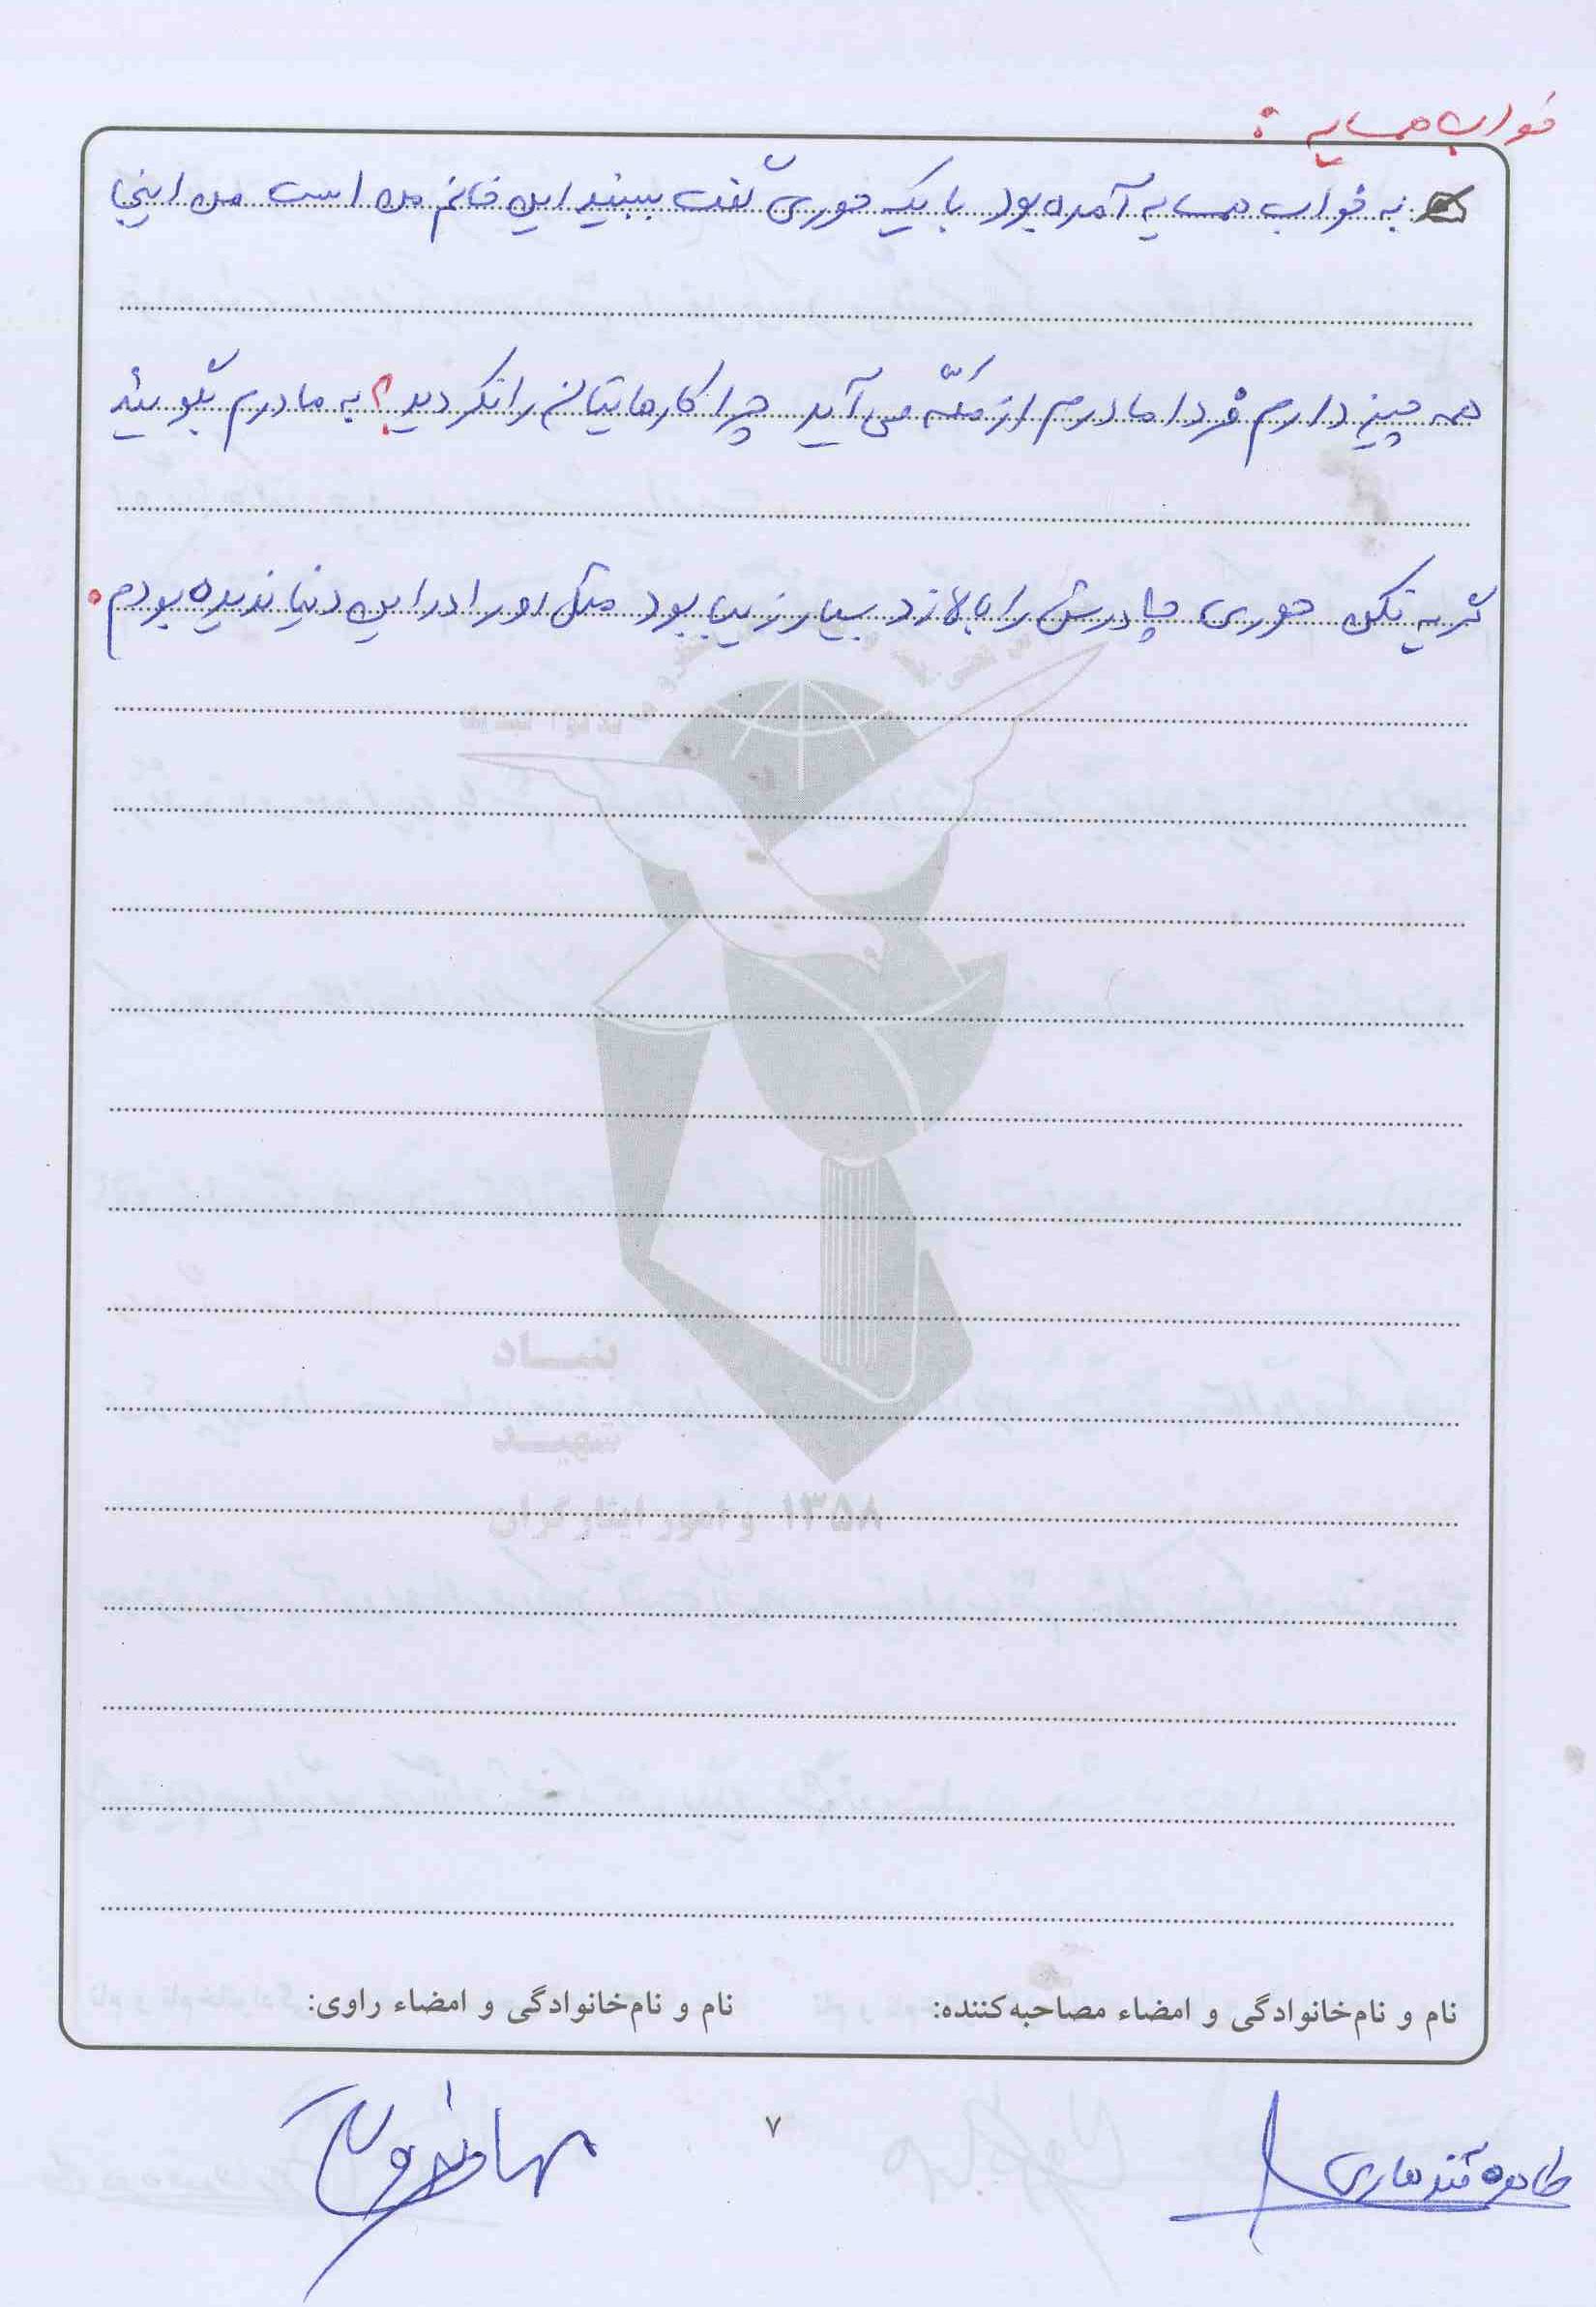 خواب همسایه :
به خواب همسایه آمده بود با یک حوری گفت ببینید این خانم من است من اینجا
همه چیز دارم فردا مادرم از مکّه می آید چرا کارهایتان را نکردید؟ به مادرم بگوئید
گریه نکن حوری چادرش را بالا زد بسیار زیبا بود مثل او را در این دنیا ندیده بودم.
بنیاد
شهید
و امور ایثارگران ۱۳۵۸
نام و نام‌خانوادگی و امضاء مصاحبه‌کننده: نام و نام‌خانوادگی و امضاء راوی:
طاهره قندهاری
۷